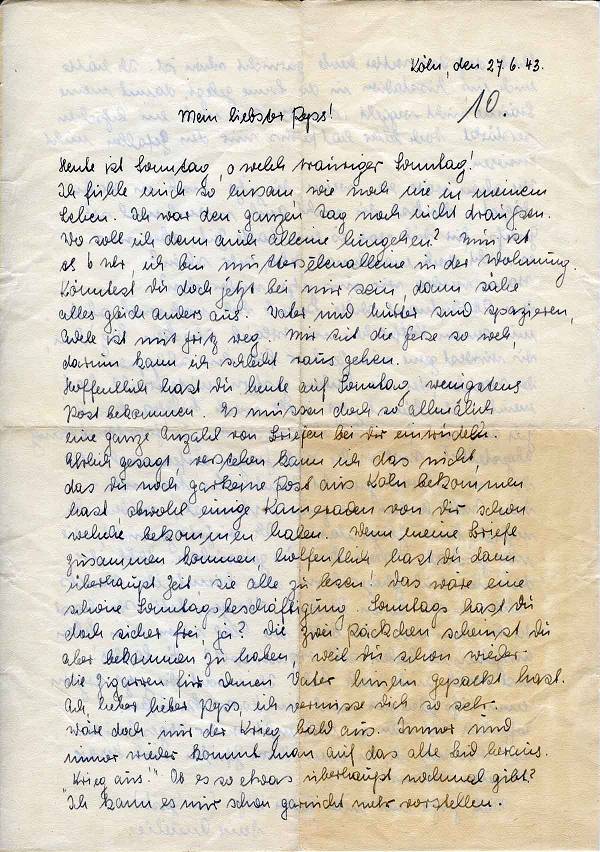 Köln, den 27.6.43.
10.
Mein liebster Peps!
Heute ist Sonntag, o welch trauriger Sonntag!
Ich fühle mich so einsam wie noch nie in meinem
Leben. Ich war den ganzen Tag noch nicht draußen.
Wo soll ich denn auch alleine hingehen? Nun ist
es 6 Uhr, ich bin mutterseelenalleine in der Wohnung.
Könntest du doch jetzt bei mir sein, dann sähe
alles gleich anders aus. Vater und Mutter sind spazieren,
ist mit Fritz weg. Mir tut die Ferse so weh,
darum kann ich schlecht raus gehen.
Hoffentlich hast du heute auf Sonntag wenigstens
Post bekommen. Es müssen doch so allmälich
eine ganze Anzahl von Briefen bei dir eintrudeln.
Ehrlich gesagt verstehen kann ich das nicht,
das du noch garkeine Post aus Köln bekommen
hast, obwohl einige Kameraden von dir schon
welche bekommen haben. Wenn meine Briefe
zusammen kommen, hoffentlich hast du dann
überhaupt Zeit, sie alle zu lesen! Das wäre eine
schöne Sonntagsbeschäftigung. Sonntags hast du
doch sicher frei, ja? Die zwei Päckchen scheinst du
aber bekommen zu haben, weil du schon wieder
die Zigarren für deinen Vater hinein gepackt hast.
Ach lieber lieber Peps, ich vermisse dich so sehr.
Wäre doch nur der Krieg bald aus. Immer und
immer wieder kommt man auf das alte Leid heraus.
"Krieg aus!" Ob es so etwas überhaupt nochmal gibt?
Ich kann es mir schon garnicht mehr vorstellen.